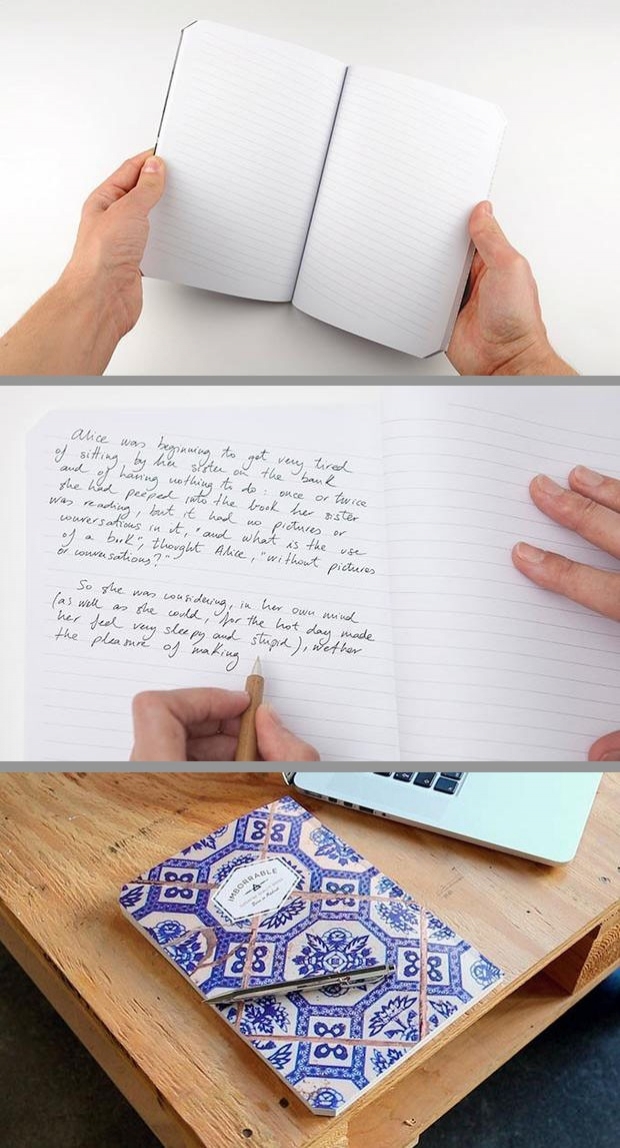 Alice was beginning to get very tired
of sitting by her sister on the bank
and of having nothing to do: once or twice
she had peeped into the book her sister
was reading, but it had no pictures or
conversations in it, "and what is the use
of a book", thought Alice, "without pictures
or conversations?"
So she was considering, in her own mind
(as well as she could, for the hot day made
her feel very sleepy and stupid), wether
the pleasure of making
IMBORRABLE